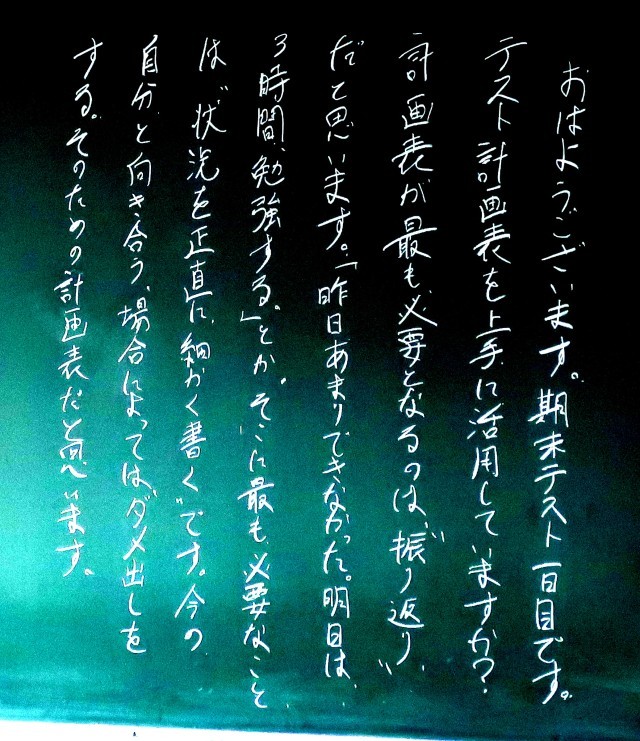 おはようございます。期末テスト一日目です。
テスト計画表を上手に活用していますか？
計画表が最も必要となるのは、“振り返り”
だと思います。「昨日あまりできなかった。明日は、
3時間、勉強する。」とか。そこに最も必要なこと
は、“状況を正直に、細かく書く”です。今の
自分と向き合う、場合によっては“ダメ出し”を
する。そのための計画表だと思います。